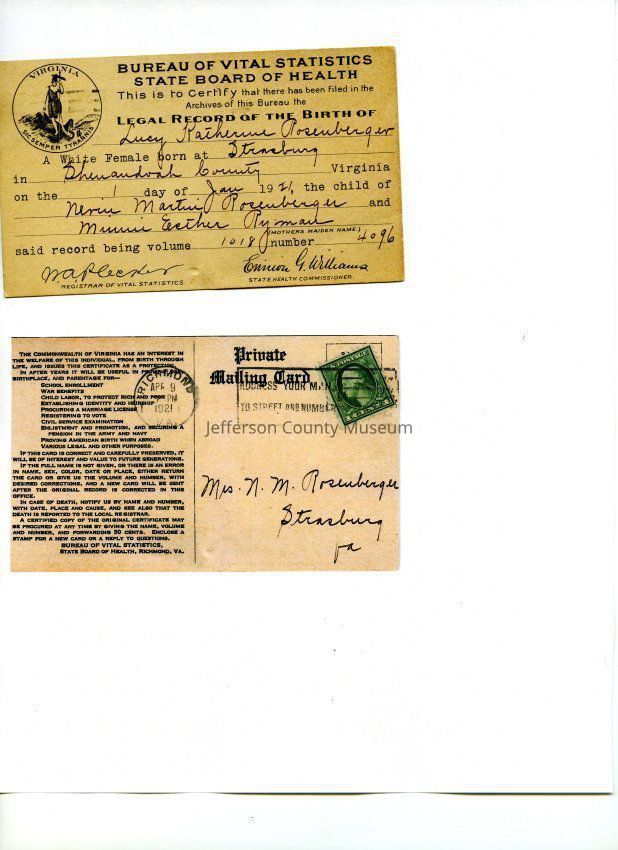 VIRGINIA
SIC SEMPER TYRANNIS
BUREAU OF VITAL STATISTICS
STATE BOARD OF HEALTH
This is to Certify that there has been filed in the
Archives of this Bureau the
LEGAL RECORD OF THE BIRTH OF
Lucy Katherine Rosenberger
A White Female born at Strasburg
in Shenandoah County Virginia
on the 1 day of Jan 1921, the child of
Nevin Martin Rosenberger and
Minnie Esther Ryman
(MOTHERS MAIDEN NAME.)
said record being volume 1018 number 4096
W A Plecker Ennion G. Williams
REGISTRAR OF VITAL STATISTICS. STATE HEALTH COMMISSIONER.
THE COMMONWEALTH OF VIRGINIA HAS AN INTEREST IN
THE WELFARE OF THIS INDIVIDUAL, FROM BIRTH THROUGH
LIFE, AND ISSUES THIS CERTIFICATE AS A PROTECTION.
IN AFTER YEARS IT WILL BE USEFUL, IN
BIRTHPLACE, AND PARENTAGE FOR—
SCHOOL ENROLLMENT
WAR BENEFITS
CHILD LABOR, TO PROTECT RICH AND POOR
ESTABLISHING IDENTITY AND HEIRSHIP
PROCURING A MARRIAGE LICENSE
REGISTERING TO VOTE
CIVIL SERVICE EXAMINATION
ENLISTMENT AND PROMOTION, AND SECURING A
PENSION IN THE ARMY AND NAVY
PROVING AMERICAN BIRTH WHEN ABROAD
VARIOUS LEGAL AND OTHER PURPOSES.
IF THIS CARD IS CORRECT AND CAREFULLY PRESERVED, IT
WILL BE OF INTEREST AND VALUE TO FUTURE GENERATIONS.
IF THE FULL NAME IS NOT GIVEN, OR THERE IS AN ERROR
IN NAME, SEX, COLOR, DATE OR PLACE, EITHER RETURN
THE CARD OR GIVE US THE VOLUME AND NUMBER, WITH
DESIRED CORRECTIONS, AND A NEW CARD WILL BE SENT
AFTER THE ORIGINAL RECORD IS CORRECTED IN THIS
OFFICE.
IN CASE OF DEATH, NOTIFY US BY NAME AND NUMBER,
WITH DATE, PLACE AND CAUSE, AND SEE ALSO THAT THE
DEATH IS REPORTED TO THE LOCAL REGISTRAR.
A CERTIFIED COPY OF THE ORIGINAL CERTIFICATE MAY
BE PROCURED AT ANY TIME BY GIVING THE NAME, VOLUME
AND NUMBER, AND FORWARDING 50 CENTS. ENCLOSE A
STAMP FOR A NEW CARD OR A REPLY TO QUESTIONS.
BUREAU OF VITAL STATISTICS,
STATE BOARD OF HEALTH, RICHMOND, VA.
Private
Mailing Card
RICHMOND
APR 9
PM
1921
ADDRESS YOUR
TO STREET AND NUMBER
POSTAGE
CENTS
Jefferson County Museum
Mrs. N. M. Rosenberger
Strasburg
Va